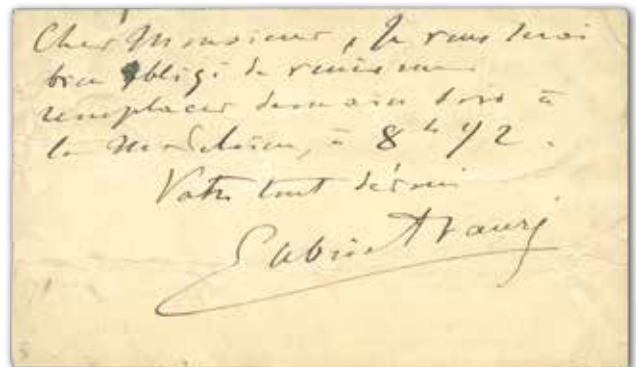 Cher Monsieur, Je vous serai
bien obligé de venir me
remplacer demain soir à
la Madeleine, à 8 h 1/2.
Votre tout dévoué
Gabriel Fauré